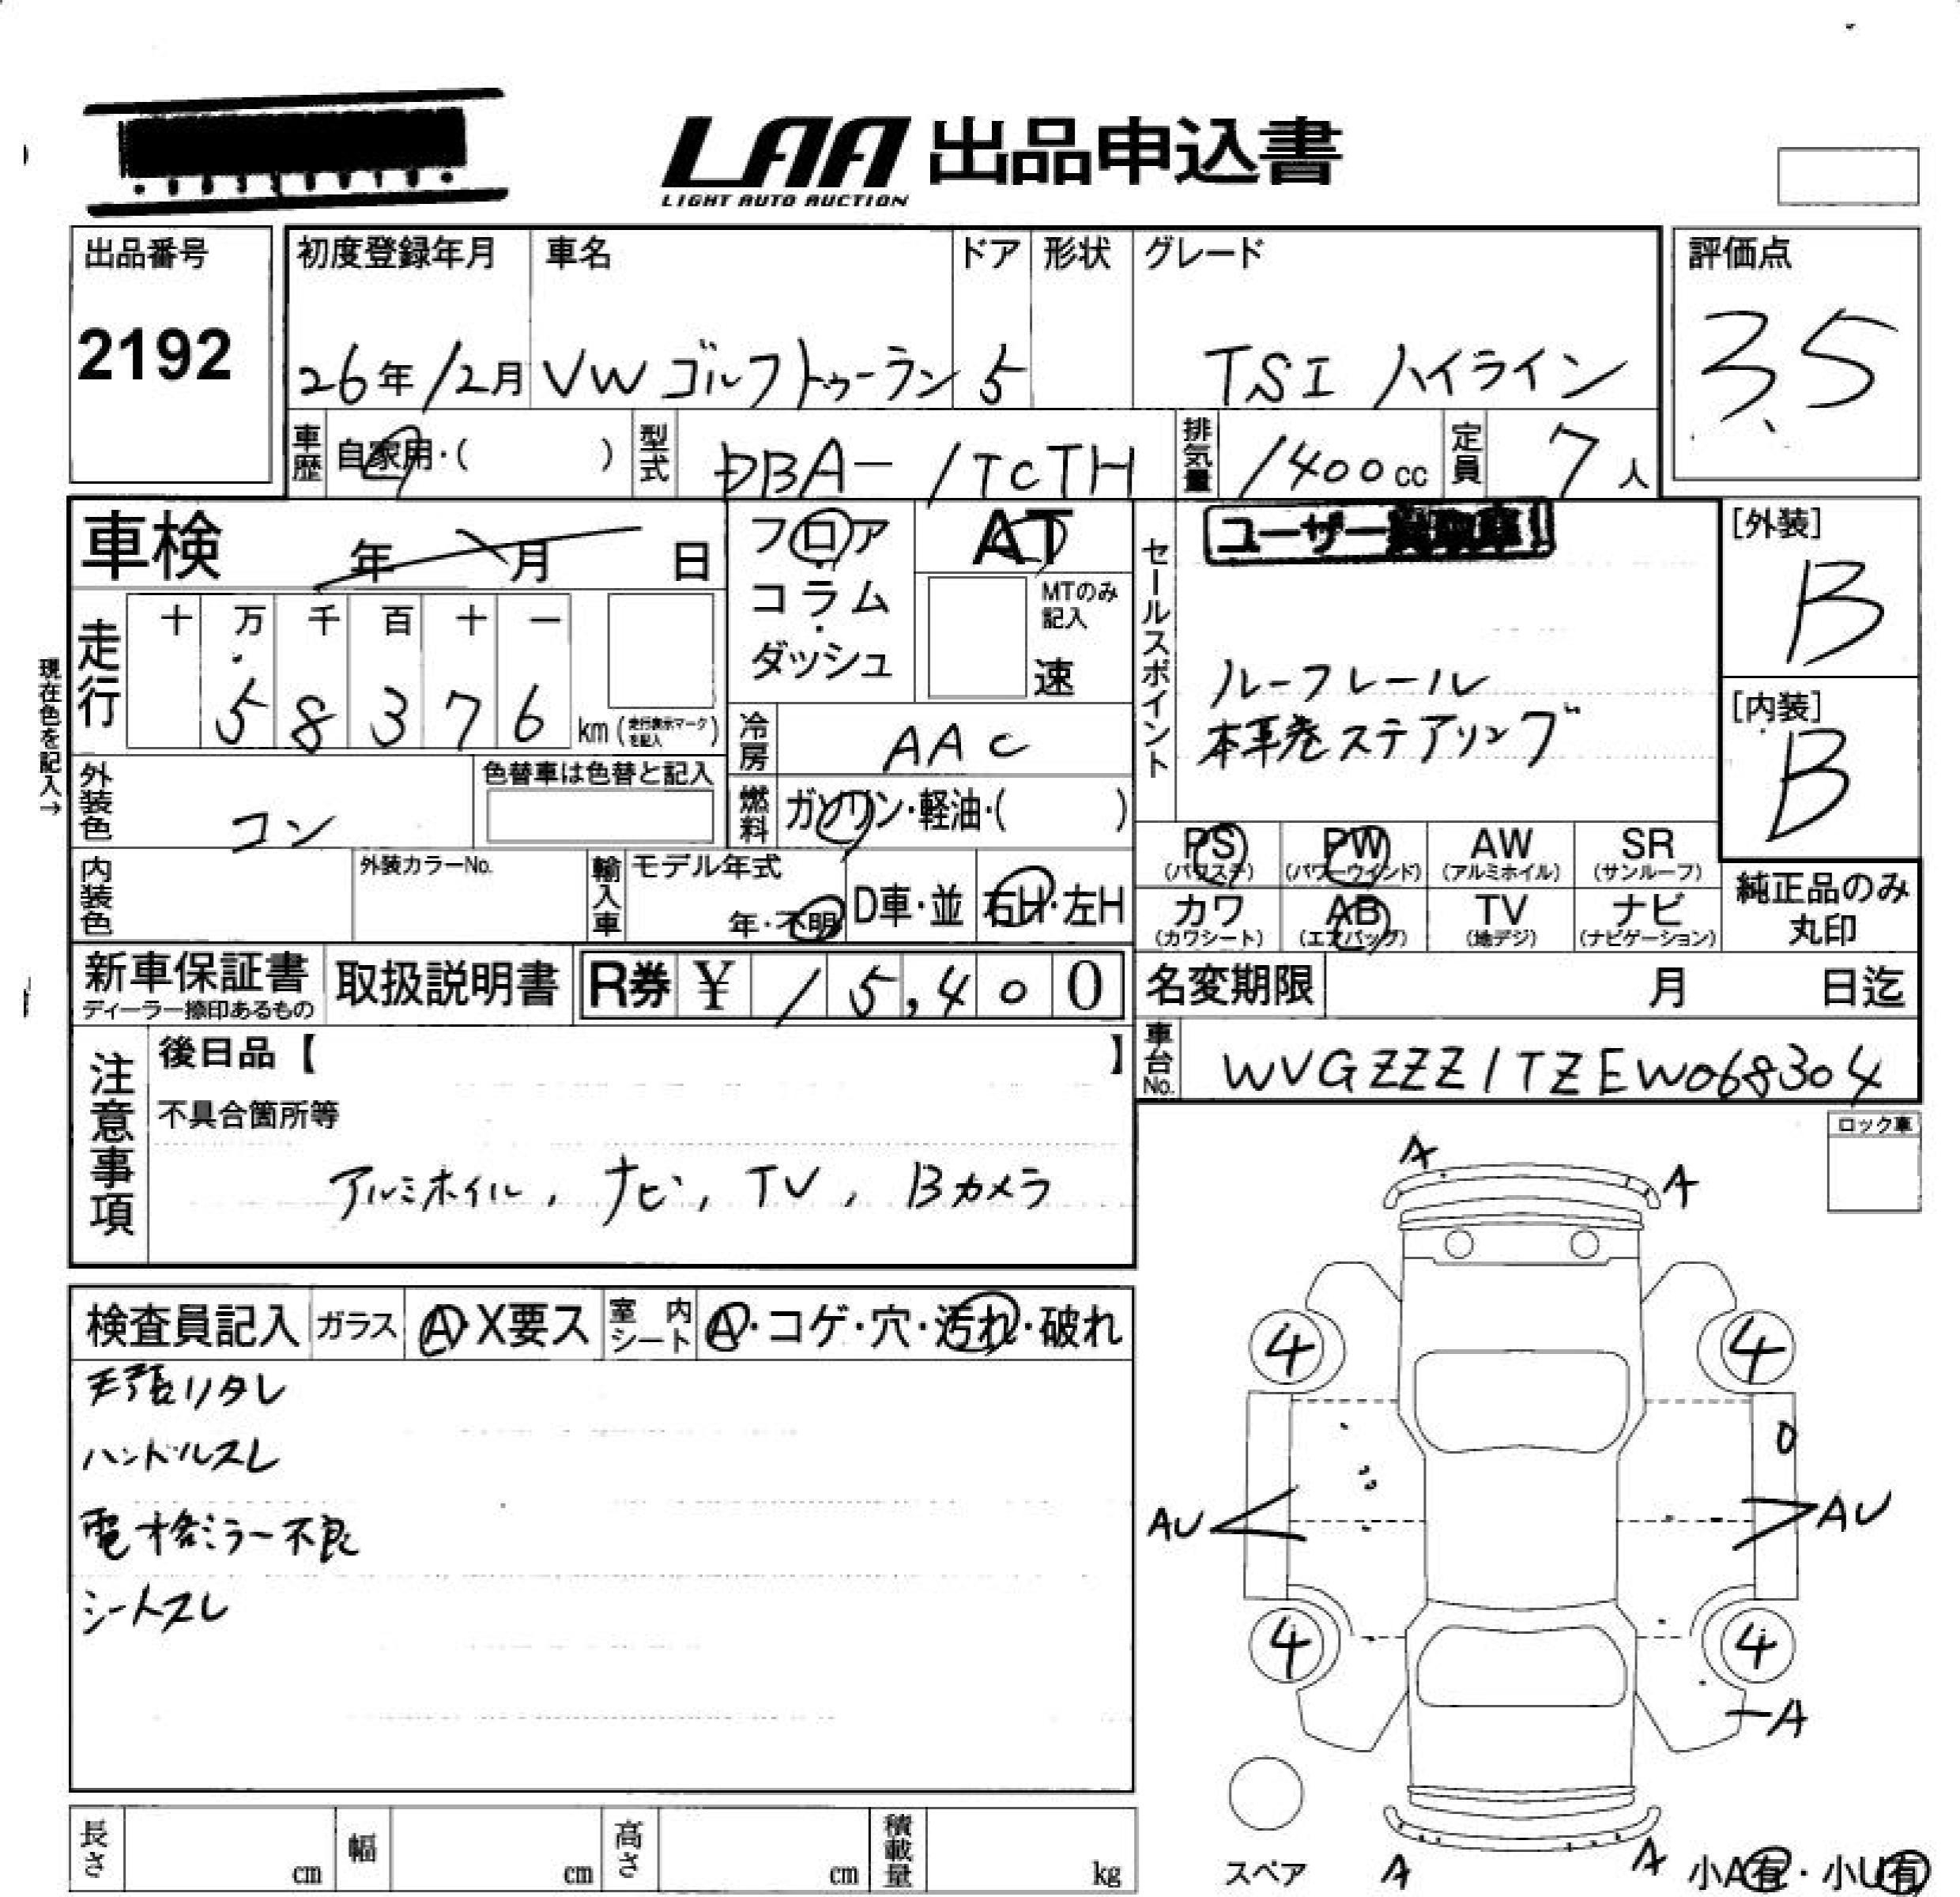 LAA 出品申込書
LIGHT AUTO AUCTION
出品番号
2192
初度登録年月
26年12月
車名
VW ゴルフトゥーラン
ドア
5
形状
グレード
TSI ハイライン
評価点
3.5
車歴
自家用・( )
型式
DBA-1TCTH
排気量
1400cc
定員
7人
車検 年 月 日
フロア・コラム・ダッシュ
AT
MTのみ記入
速
セールスポイント
ユーザー買取車!
ルーフレール
本革巻ステアリング
[外装]
B
[内装]
B
現在色を記入→
走行
十 万 千 百 十 一
5 8 3 7 6 km (走行表示マークを記入)
冷房
AAC
外装色
コン
色替車は色替と記入
燃料
ガソリン・軽油・( )
PS
(パワステ)
PW
(パワーウインド)
AW
(アルミホイル)
SR
(サンルーフ)
カワ
(カワシート)
AB
(エアバッグ)
TV
(地デジ)
ナビ
(ナビゲーション)
純正品のみ
丸印
内装色
外装カラーNo.
輸入車
モデル年式
年・不明
D車・並
右H・左H
新車保証書
ディーラー捺印あるもの
取扱説明書
R券 ¥ 15,400
名変期限 月 日迄
車台No.
WVGZZZ1TZEW068304
注意事項
後日品【 】
不具合箇所等
アルミホイル, ナビ, TV, Bカメラ
ロック車
検査員記入
ガラス
A・X要ス
室内シート
A・コゲ・穴・汚れ・破れ
天張リタレ
ハンドルスレ
電格ミラー不良
シートスレ
A
A
4
4
U
AU
AU
4
4
A
スペア
A
A
小A有・小U有
長さ cm
幅 cm
高さ cm
積載量 kg